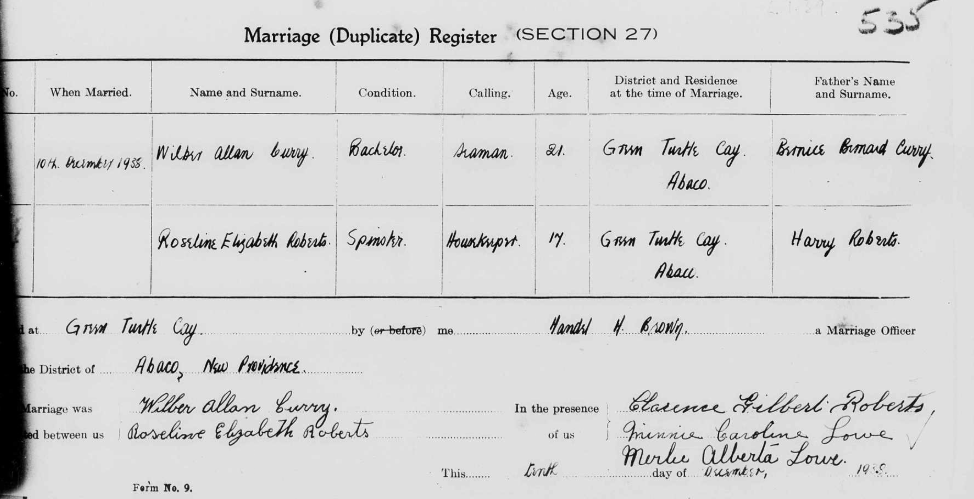 535
Marriage (Duplicate) Register (SECTION 27)
No. When Married. Name and Surname. Condition. Calling. Age. District and Residence at the time of Marriage. Father's Name and Surname.
10th December 1938. Wilber Allan Curry. Bachelor. Seaman. 21. Green Turtle Cay. Abaco. Bernice Bernard Curry.
Roseline Elizabeth Roberts. Spinster. Housekeeper. 17. Green Turtle Cay. Abaco. Harry Roberts.
d at Green Turtle Cay. by (or before) me Handel H. Brown. a Marriage Officer
the District of Abaco, New Providence.
Marriage was Wilber Allan Curry. In the presence Clarence Gilbert Roberts,
ted between us Roseline Elizabeth Roberts of us Minnie Caroline Lowe
Merlie Alberta Lowe.
This tenth day of December,
Form No. 9.